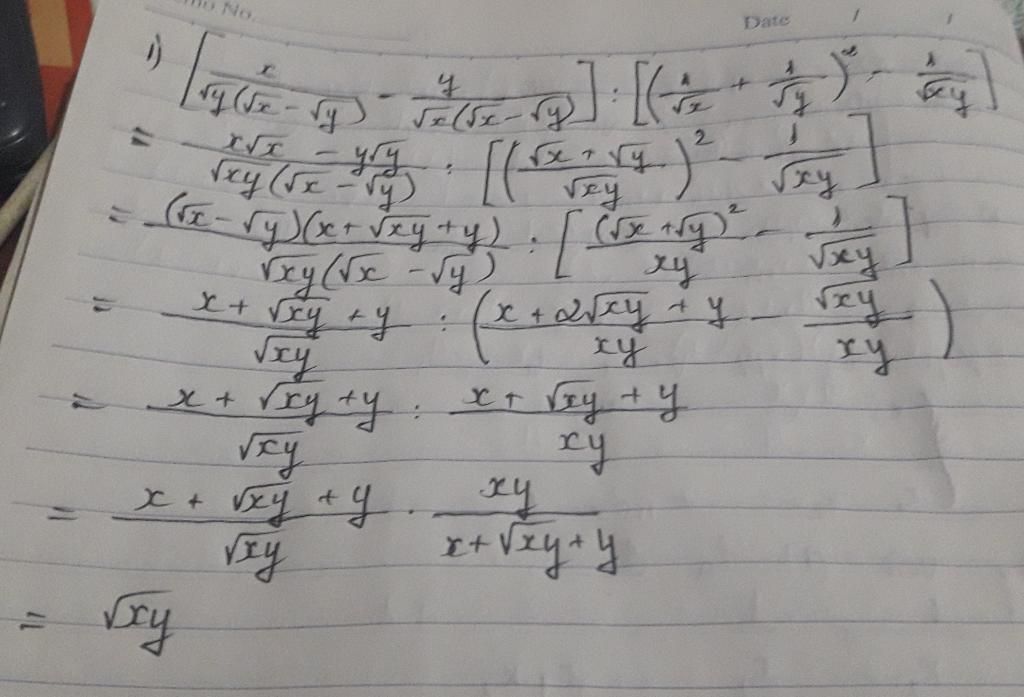 mo No. Date / /
1) [x/(√y(√x - √y)) - y/(√x(√x - √y))] : [(1/√x + 1/√y)² - 1/√xy]
= (x√x - y√y)/(√xy(√x - √y)) : [((√x + √y)/√xy)² - 1/√xy]
= ((√x - √y)(x + √xy + y))/(√xy(√x - √y)) : [(√x + √y)²/xy - 1/√xy]
= (x + √xy + y)/√xy : ((x + 2√xy + y)/xy - √xy/xy)
= (x + √xy + y)/√xy : (x + √xy + y)/xy
= (x + √xy + y)/√xy · xy/(x + √xy + y)
= √xy